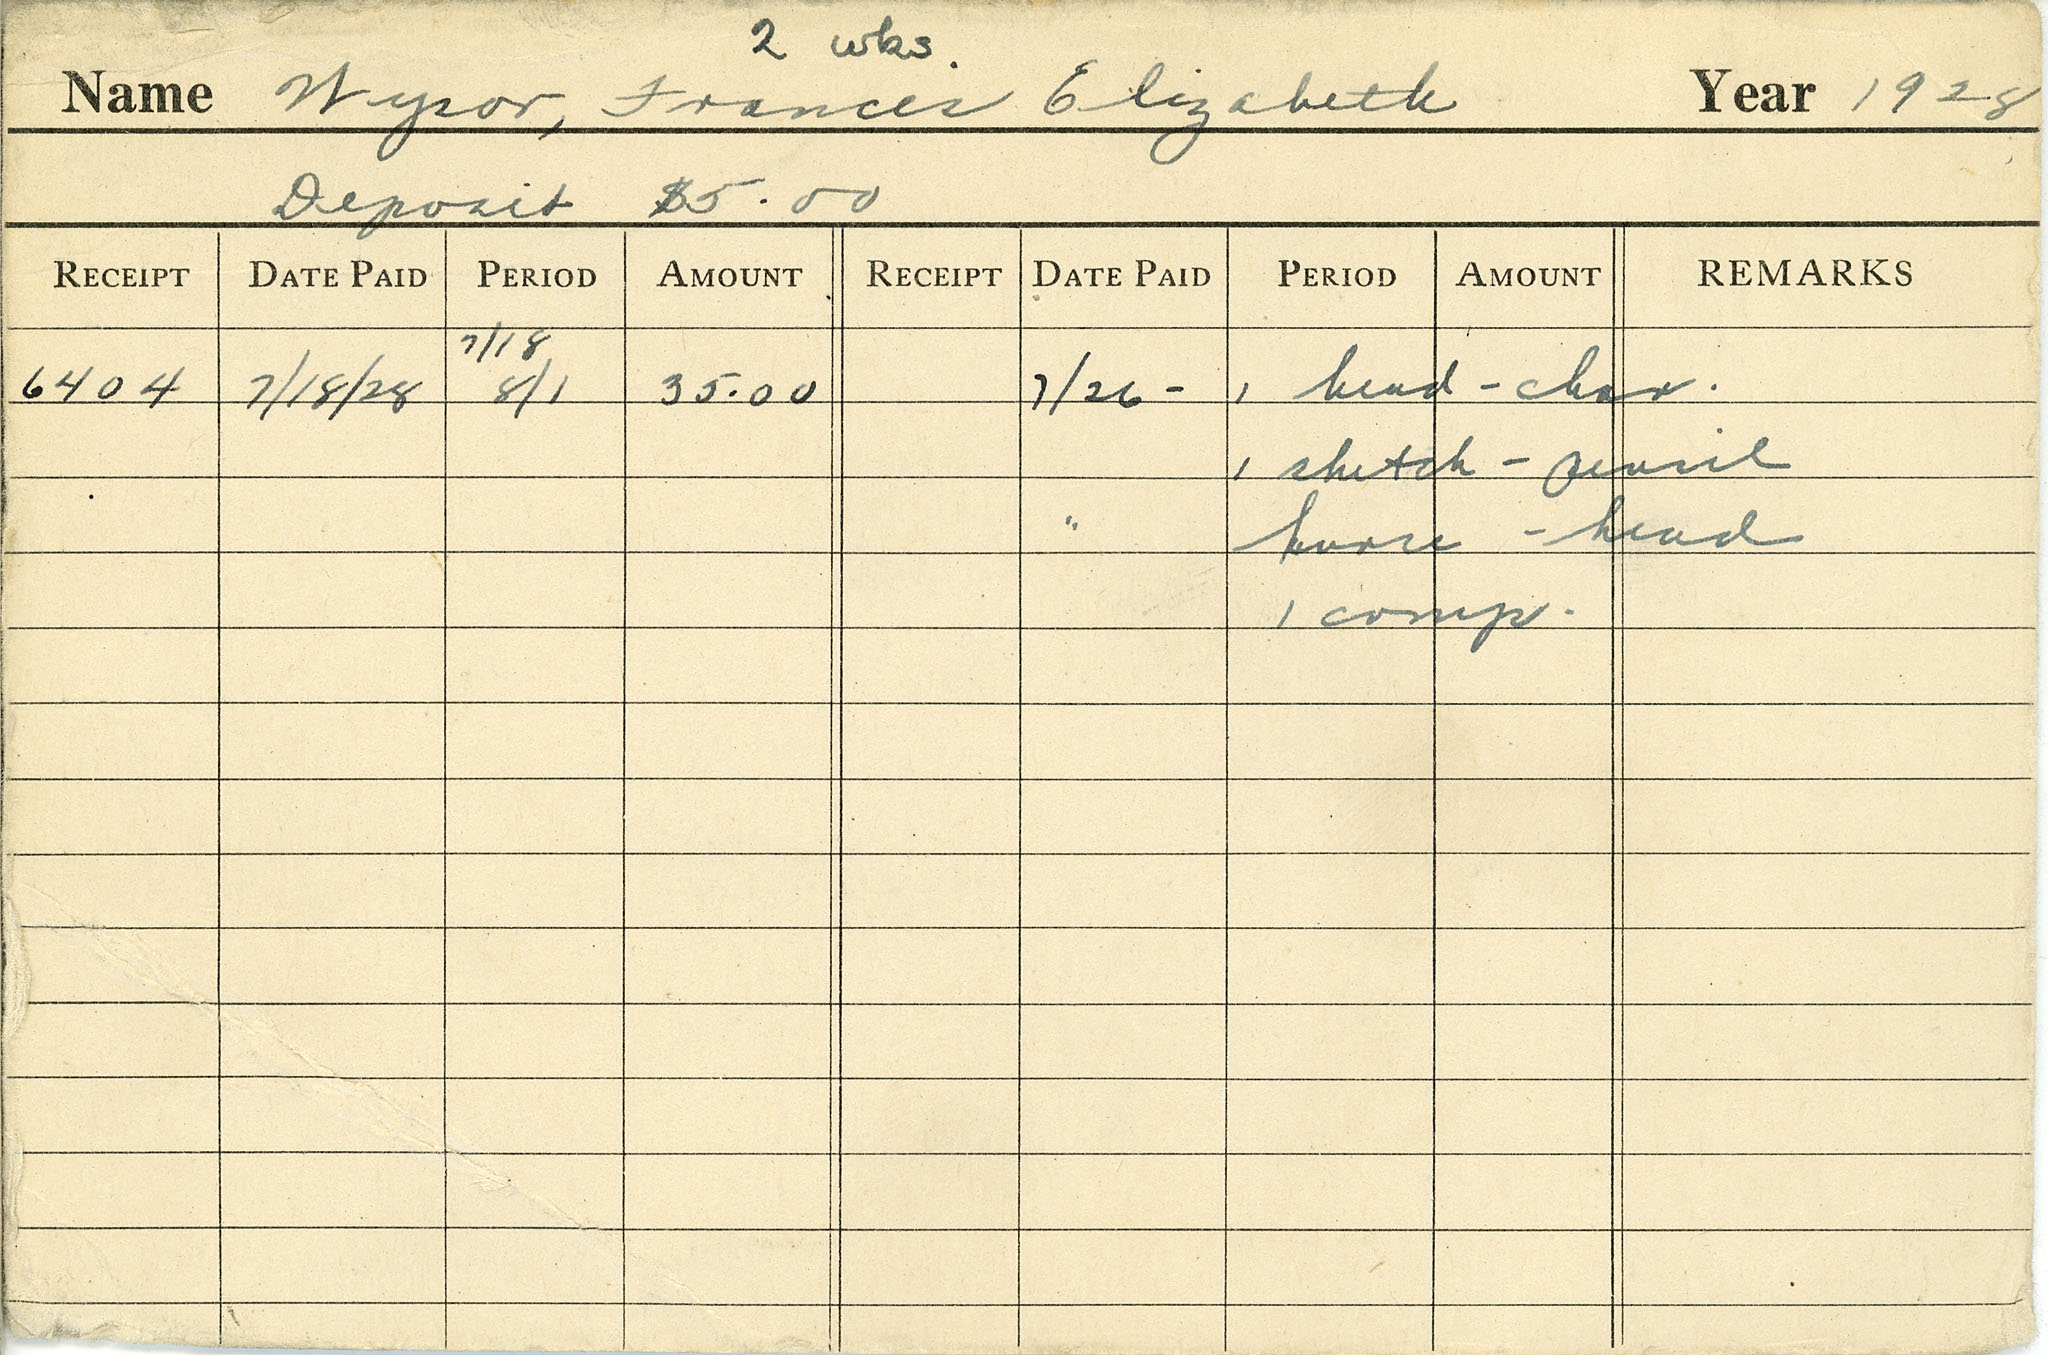 2 wks.
Name Wysor, Frances Elizabeth Year 1928
Deposit $5.00
RECEIPT DATE PAID PERIOD AMOUNT RECEIPT DATE PAID PERIOD AMOUNT REMARKS
7/18
6404 7/18/28 8/1 35.00 7/26- 1 head - char.
1 sketch - pencil
" horse - head
1 comp.